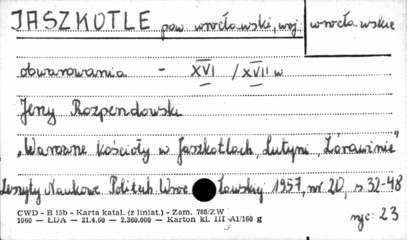 JASZKOTLE pow. wrocławski, woj. wrocławskie
obwarowania - XVI / XVII w
Jerzy Rozpendowski
„Warowne kościoły w Jaszkotlach, Lutyni, Żórawinie"
Zeszyty Naukowe Politech Wroc ławskiej 1957, nr. 20, s. 32-48
CWD - B 15b - Karta katal. (z liniat.) - Zam. 788/ZW
1060 - LDA - 21.4.60 - 2.360.000 - Karton kl. III A1/160 g
ryc: 23